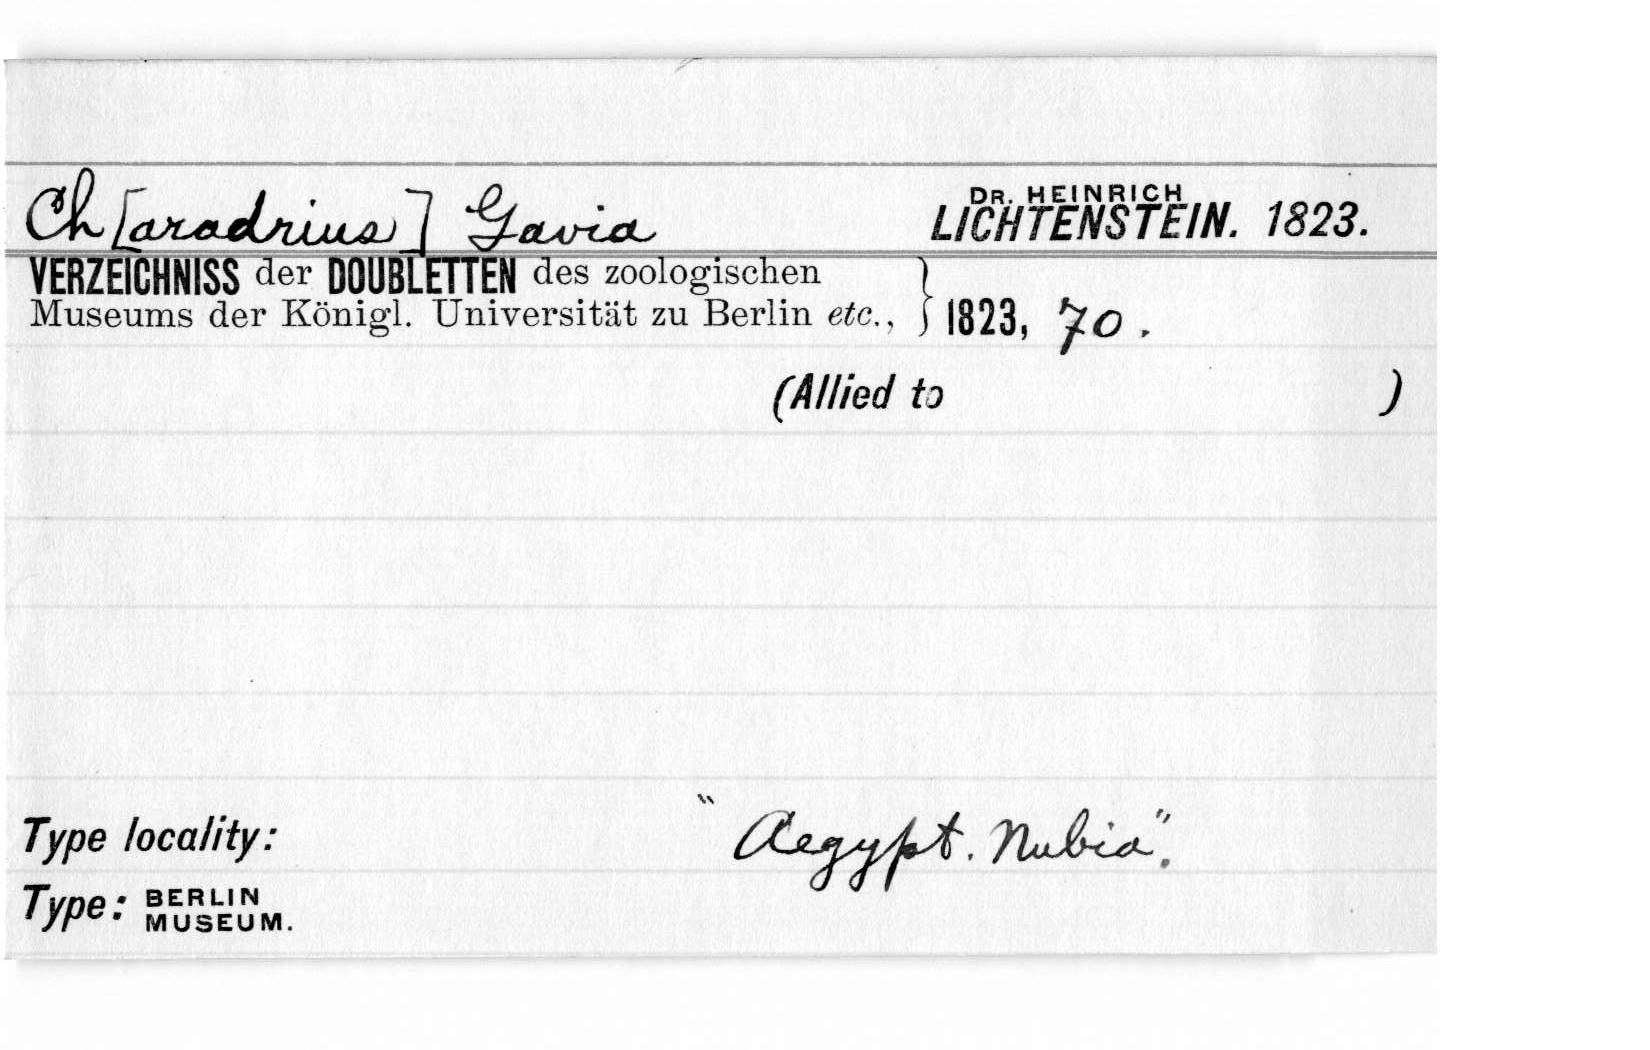 Ch[aradrius] Gavia DR. HEINRICH LICHTENSTEIN. 1823.
VERZEICHNISS der DOUBLETTEN des zoologischen
Museums der Königl. Universität zu Berlin etc., } 1823, 70.
(Allied to )
Type locality: "Aegypt. Nubia".
Type: BERLIN MUSEUM.